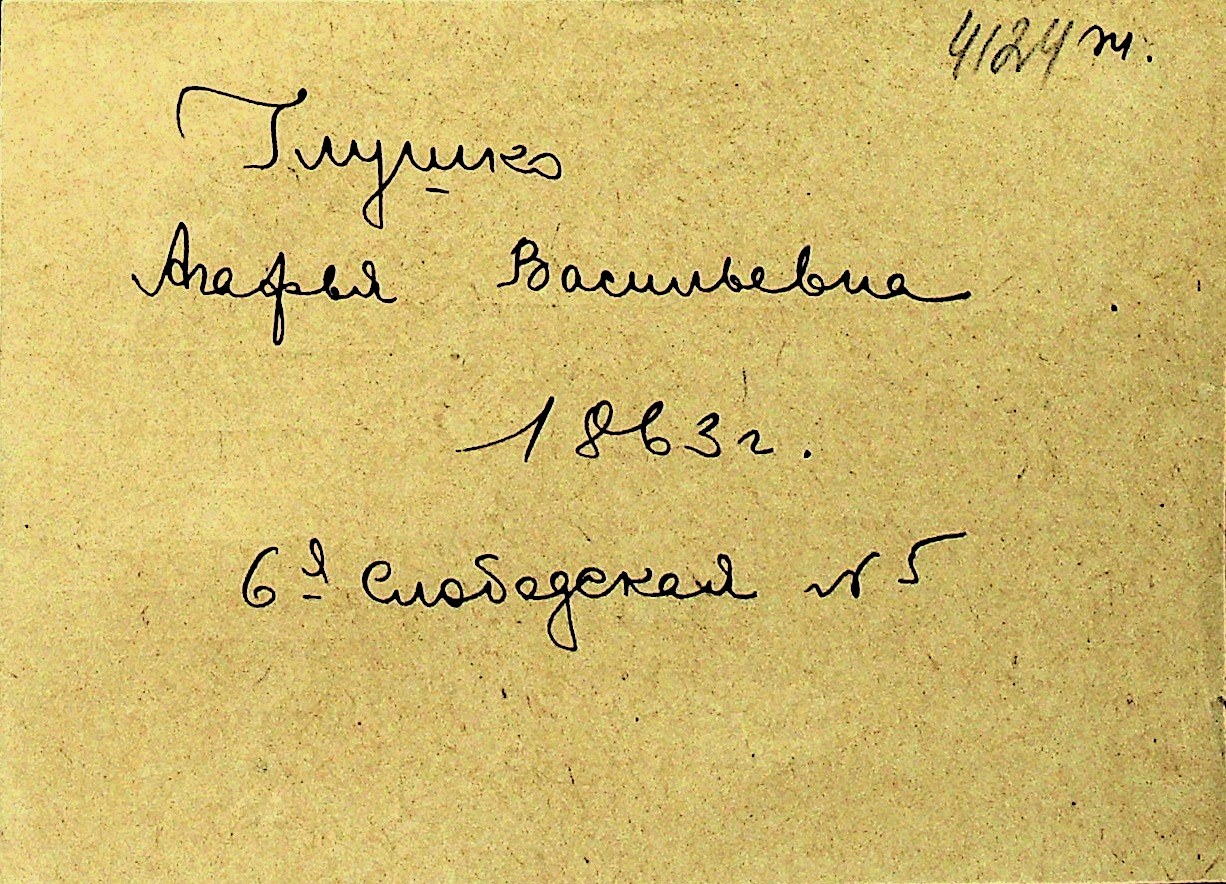 4124 т.
Глушко
Агафья Васильевна
1863 г.
6я Слободская № 5